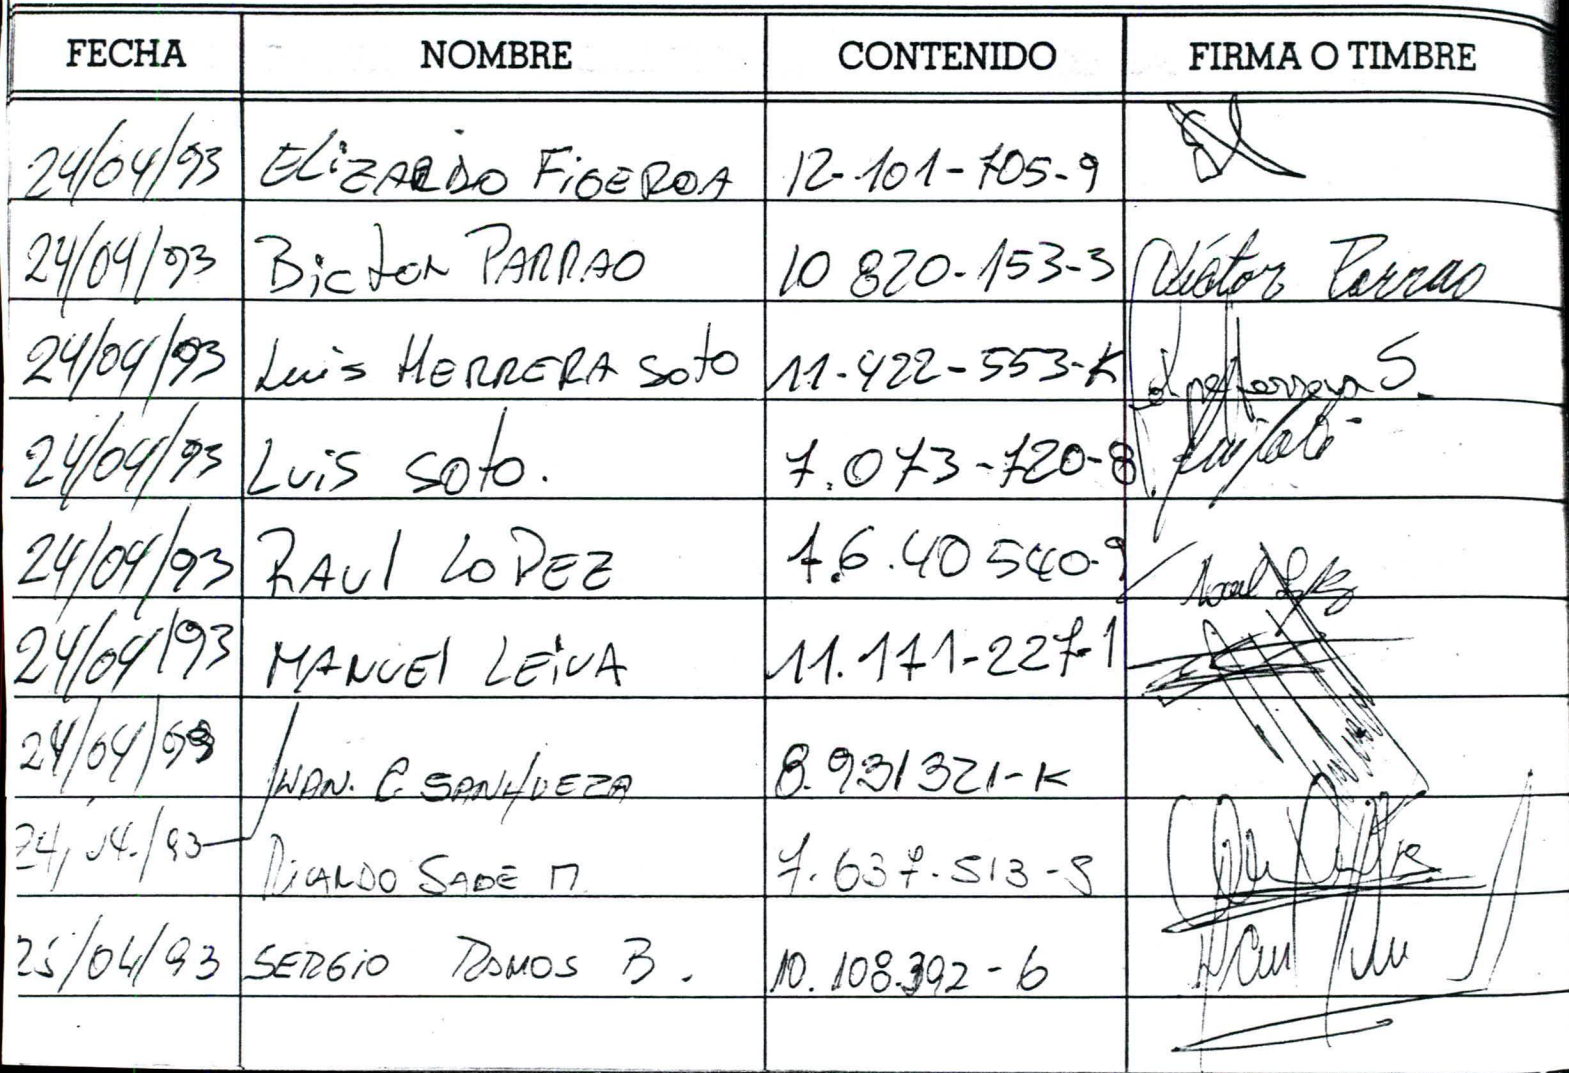 FECHA NOMBRE CONTENIDO FIRMA O TIMBRE
24/04/93 ELIZARDO FIGEROA 12-101-705-9
24/04/93 Bictor PARRAO 10 820-153-3 Víctor Parrao
24/04/93 Luis HERRERA Soto 11-422-553-K Luis Herrera S.
24/04/93 Luis Soto. 7.073-720-8 Luis Soto
24/04/93 RAUl LOPEZ 7.6.40 540-9 Raul
24/04/93 MANUEl LEIVA 11.171-227-1
24/04/93 C SANHUEZA 8.931321-K
24/04/93 RICARDO SADE M 7.637.513-
25/04/93 SERGIO RAMOS B. 10.108.392-6